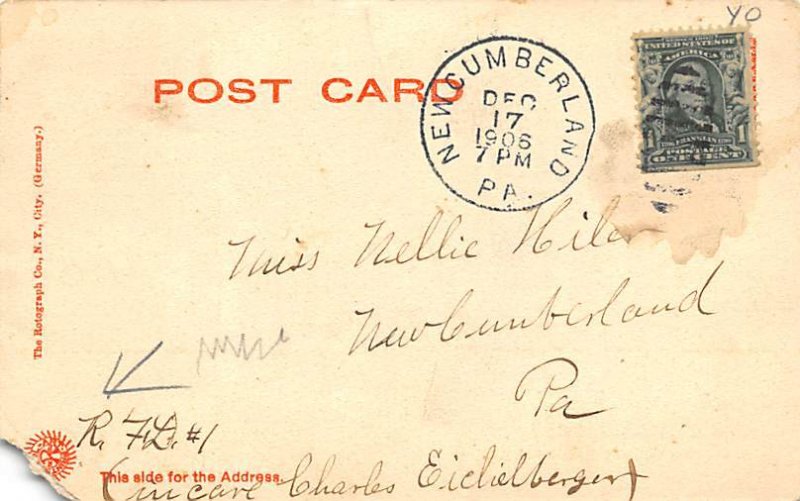 YO
POST CARD
NEW CUMBERLAND
DEC
17
1906
7 PM
PA.
UNITED STATES OF
AMERICA
FRANKLIN
POSTAGE
1 ONE CENT 1
The Rotograph Co., N. Y., City. (Germany.)
Miss Nellie
New Cumberland
Pa
R. F.D. #1
This side for the Address.
(in care Charles Eichelberger)